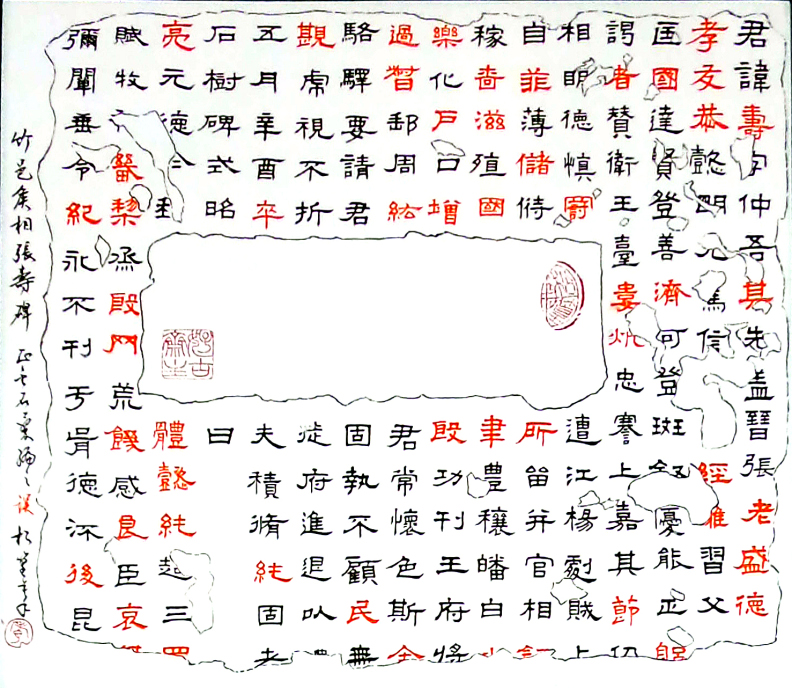 君諱壽字仲吾其先盖晉張老盛德
孝友恭懿明允篤信經雅習父
匡國達賢登善濟可登斑叙優能正躬
諤者贊衛王臺婁忠謇上嘉其節仍
相明德慎罰遭江楊劇賊上
自菲薄儲偫所畄并官相
稼嗇滋殖國聿豊穰皤白
樂化戶口增殷功刊王府將
過督郵周紘君常懷色斯全
駱驛要請君固執不顧民無
觀虎視不折徙府進退以
五月辛酉卒夫積脩純固老
石樹碑式昭曰
亮元德體懿純超三四
賦牧黎烝殷罔荒饑感良臣哀
彌闡垂令紀永不刊于胄德流後昆
竹邑侯相張壽碑